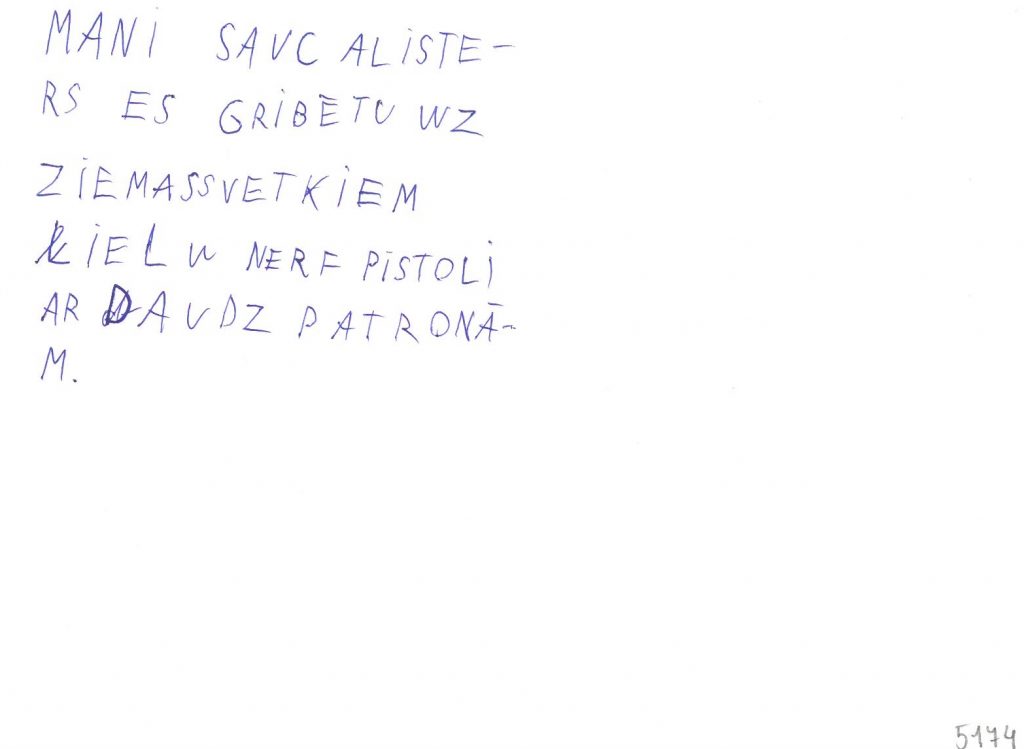 MANI SAVC ALISTE-
RS ES GRIBĒTU WZ
ZIEMASSVETKIEM
LIELU NERF PISTOLI
AR DAUDZ PATRONĀ-
M.
5174